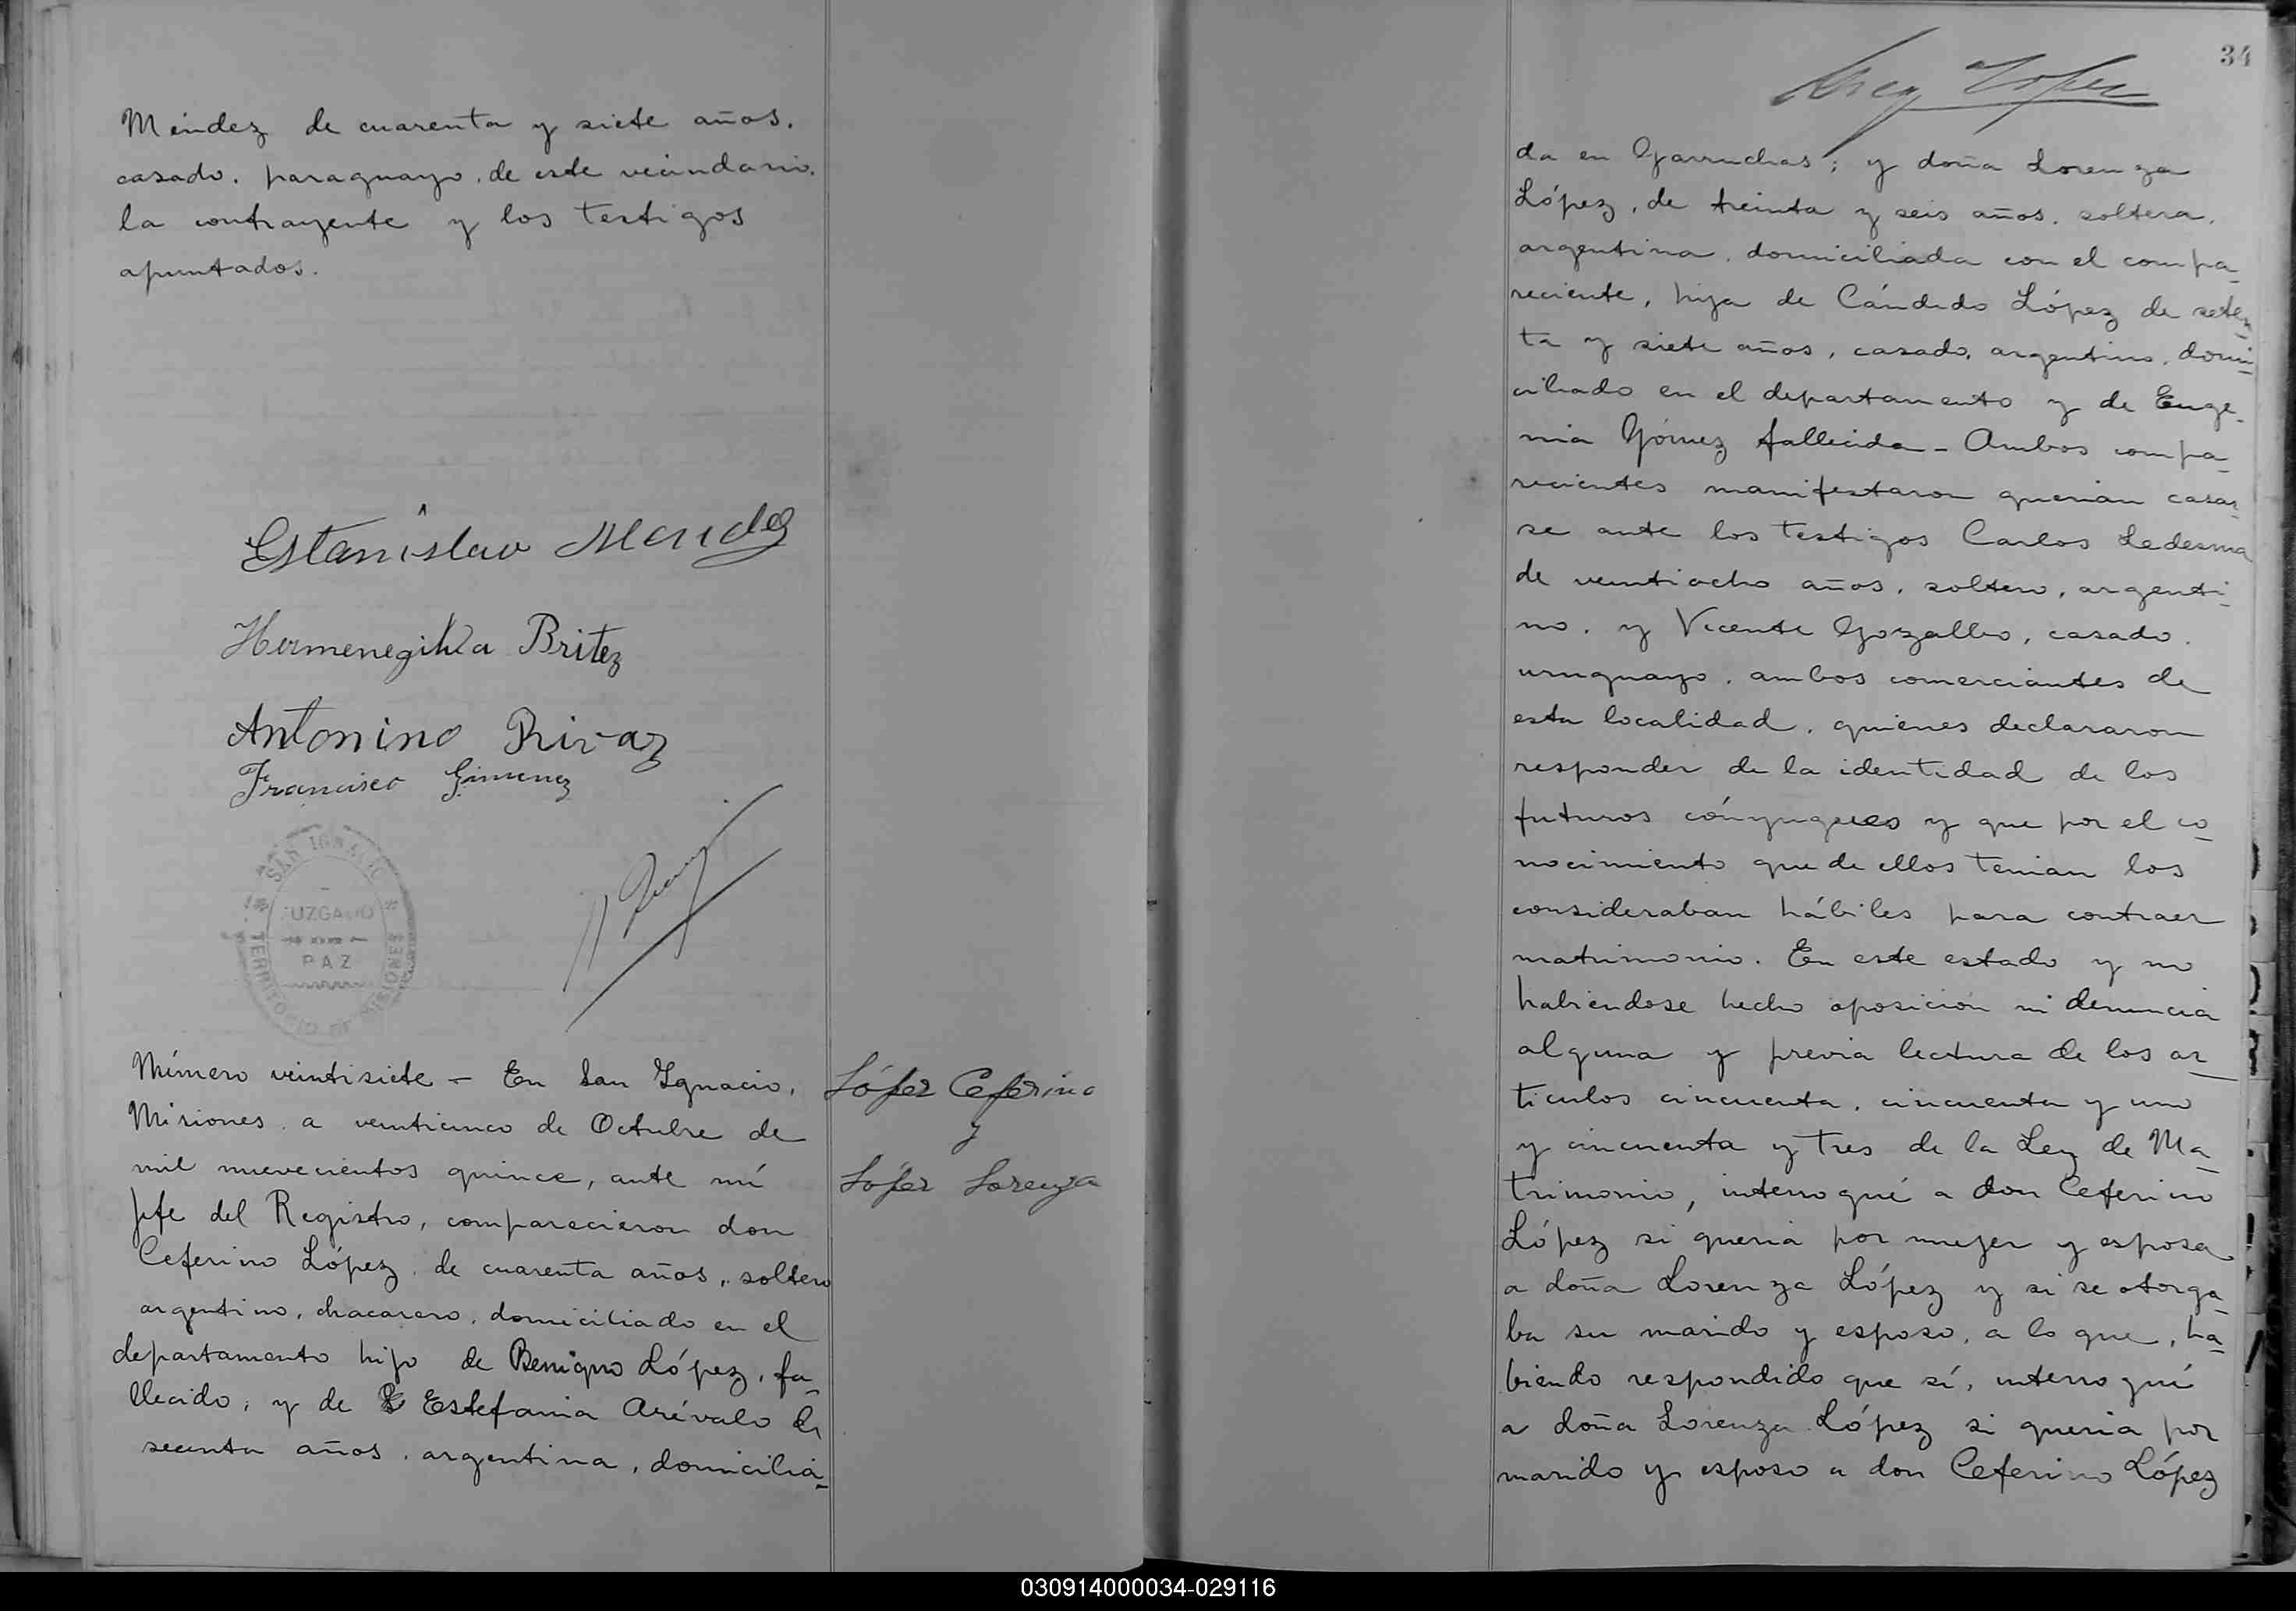 Méndez de cuarenta y siete años.
casado. paraguayo. de este vecindario.
la contrayente y los testigos
apuntados.
Estanislao Mendez
Hermenegilda Britez
Antonino Rivaz
Francisco Gimenez
SAN IGNACIO
JUZGADO
DE
PAZ
TERRITORIO DE MISIONES
Número veintisiete - En San Ignacio,
Misiones a veinticinco de Octubre de
mil nuevecientos quince, ante mí
jefe del Registro, comparecieron don
Ceferino López, de cuarenta años, soltero
argentino, chacarero, domiciliado en el
departamento hijo de Benigno López, fa-
llecido; y de Estefania Arévalo de
secenta años, argentina, domicilia-
López Ceferino
y
López Lorenza
34
da en Garruchas; y doña Lorenza
López, de treinta y seis años, soltera,
argentina, domiciliada con el compa-
reciente, hija de Cándido López de seten-
ta y siete años, casado, argentino, domi-
ciliado en el departamento y de Euge-
nia Gómez fallecida - Ambos compa-
recientes manifestaron querian casar-
se ante los testigos Carlos Ledesma
de veintiocho años, soltero, argenti-
no, y Vicente Gozalbo, casado.
uruguayo, ambos comerciantes de
esta localidad, quienes declararon
responder de la identidad de los
futuros cónyugues y que por el co-
nocimiento que de ellos tenian los
consideraban hábiles para contraer
matrimonio. En este estado y no
habiendose hecho oposición ni denuncia
alguna y previa lectura de los ar-
ticulos cincuenta, cincuenta y uno
y cincuenta y tres de la Ley de Ma-
trimonio, interrogué a don Ceferino
López si queria por mujer y esposa
a doña Lorenza López y si se otorga-
ba su marido y esposo, a lo que, ha-
biendo respondido que sí, interrogué
a doña Lorenza López si queria por
marido y esposo a don Ceferino López
030914000034-029116